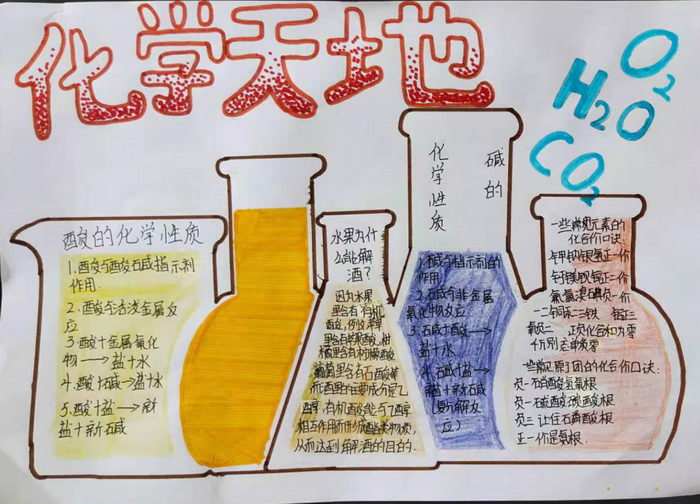 化学天地
O2
H2O
CO2
酸的化学性质
1.酸与酸石碱指示剂
作用.
2.酸与活泼金属反
应
3.酸+金属氧化
物→盐+水
4.酸+碱→盐+水
5.酸+盐→
盐+新
水果为什
么能解
酒?
因为水果
里含有有机
酸,例如苹果
里含有
葡萄里含有
而酒里的主要成分是乙
醇,有机酸能与乙醇
相互作用而形成酯类物质,
从而达到解酒的目的.
碱的
化学性质
1.碱与指示剂的
作用
2.碱与非金属
氧化物反应
3.碱+酸→
盐+水
4.碱+盐→
新盐+新碱
(复分解反
应)
一些常见元素的
化合价口诀
钾钠银氢正一价
钙镁钡锌正二价
负一价
正负化合和为零
单质零
一些原子团的化合价口诀:
负一硝酸氢氧根
负二硫酸碳酸根
负三
正一价是氨根.